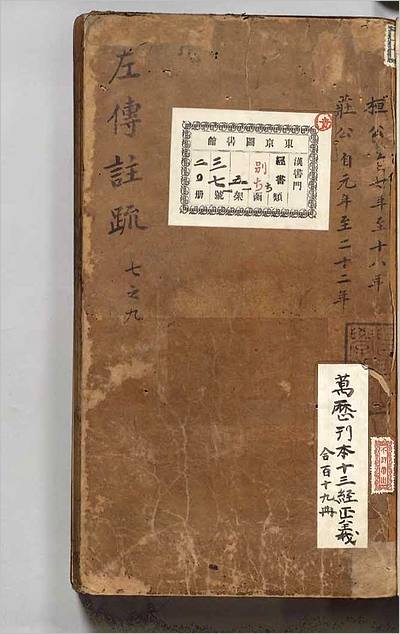 桓公自七年至十八年
莊公自元年至二十二年
左傳註疏 七之九
東京圖書館
漢書門
經書類
別 函
五 架
三七 號
二〇 册
萬歷刊本十三經正義
合百十九冊